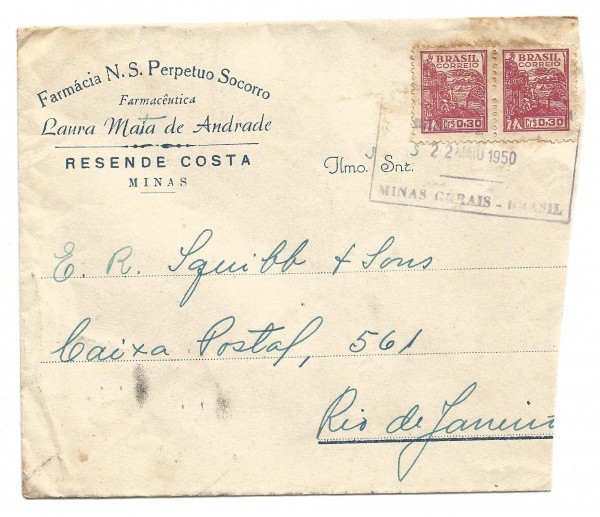 Farmácia N. S. Perpetuo Socorro
Farmacêutica
Laura Maia de Andrade
RESENDE COSTA
MINAS
BRASIL CORREIO
Cr$ 0,30
BRASIL CORREIO
Cr$ 0,30
22 MAIO 1950
MINAS GERAIS - BRASIL
Ilmo. Snr.
E. R. Squibb & Sons
Caixa Postal, 561
Rio de Janeiro